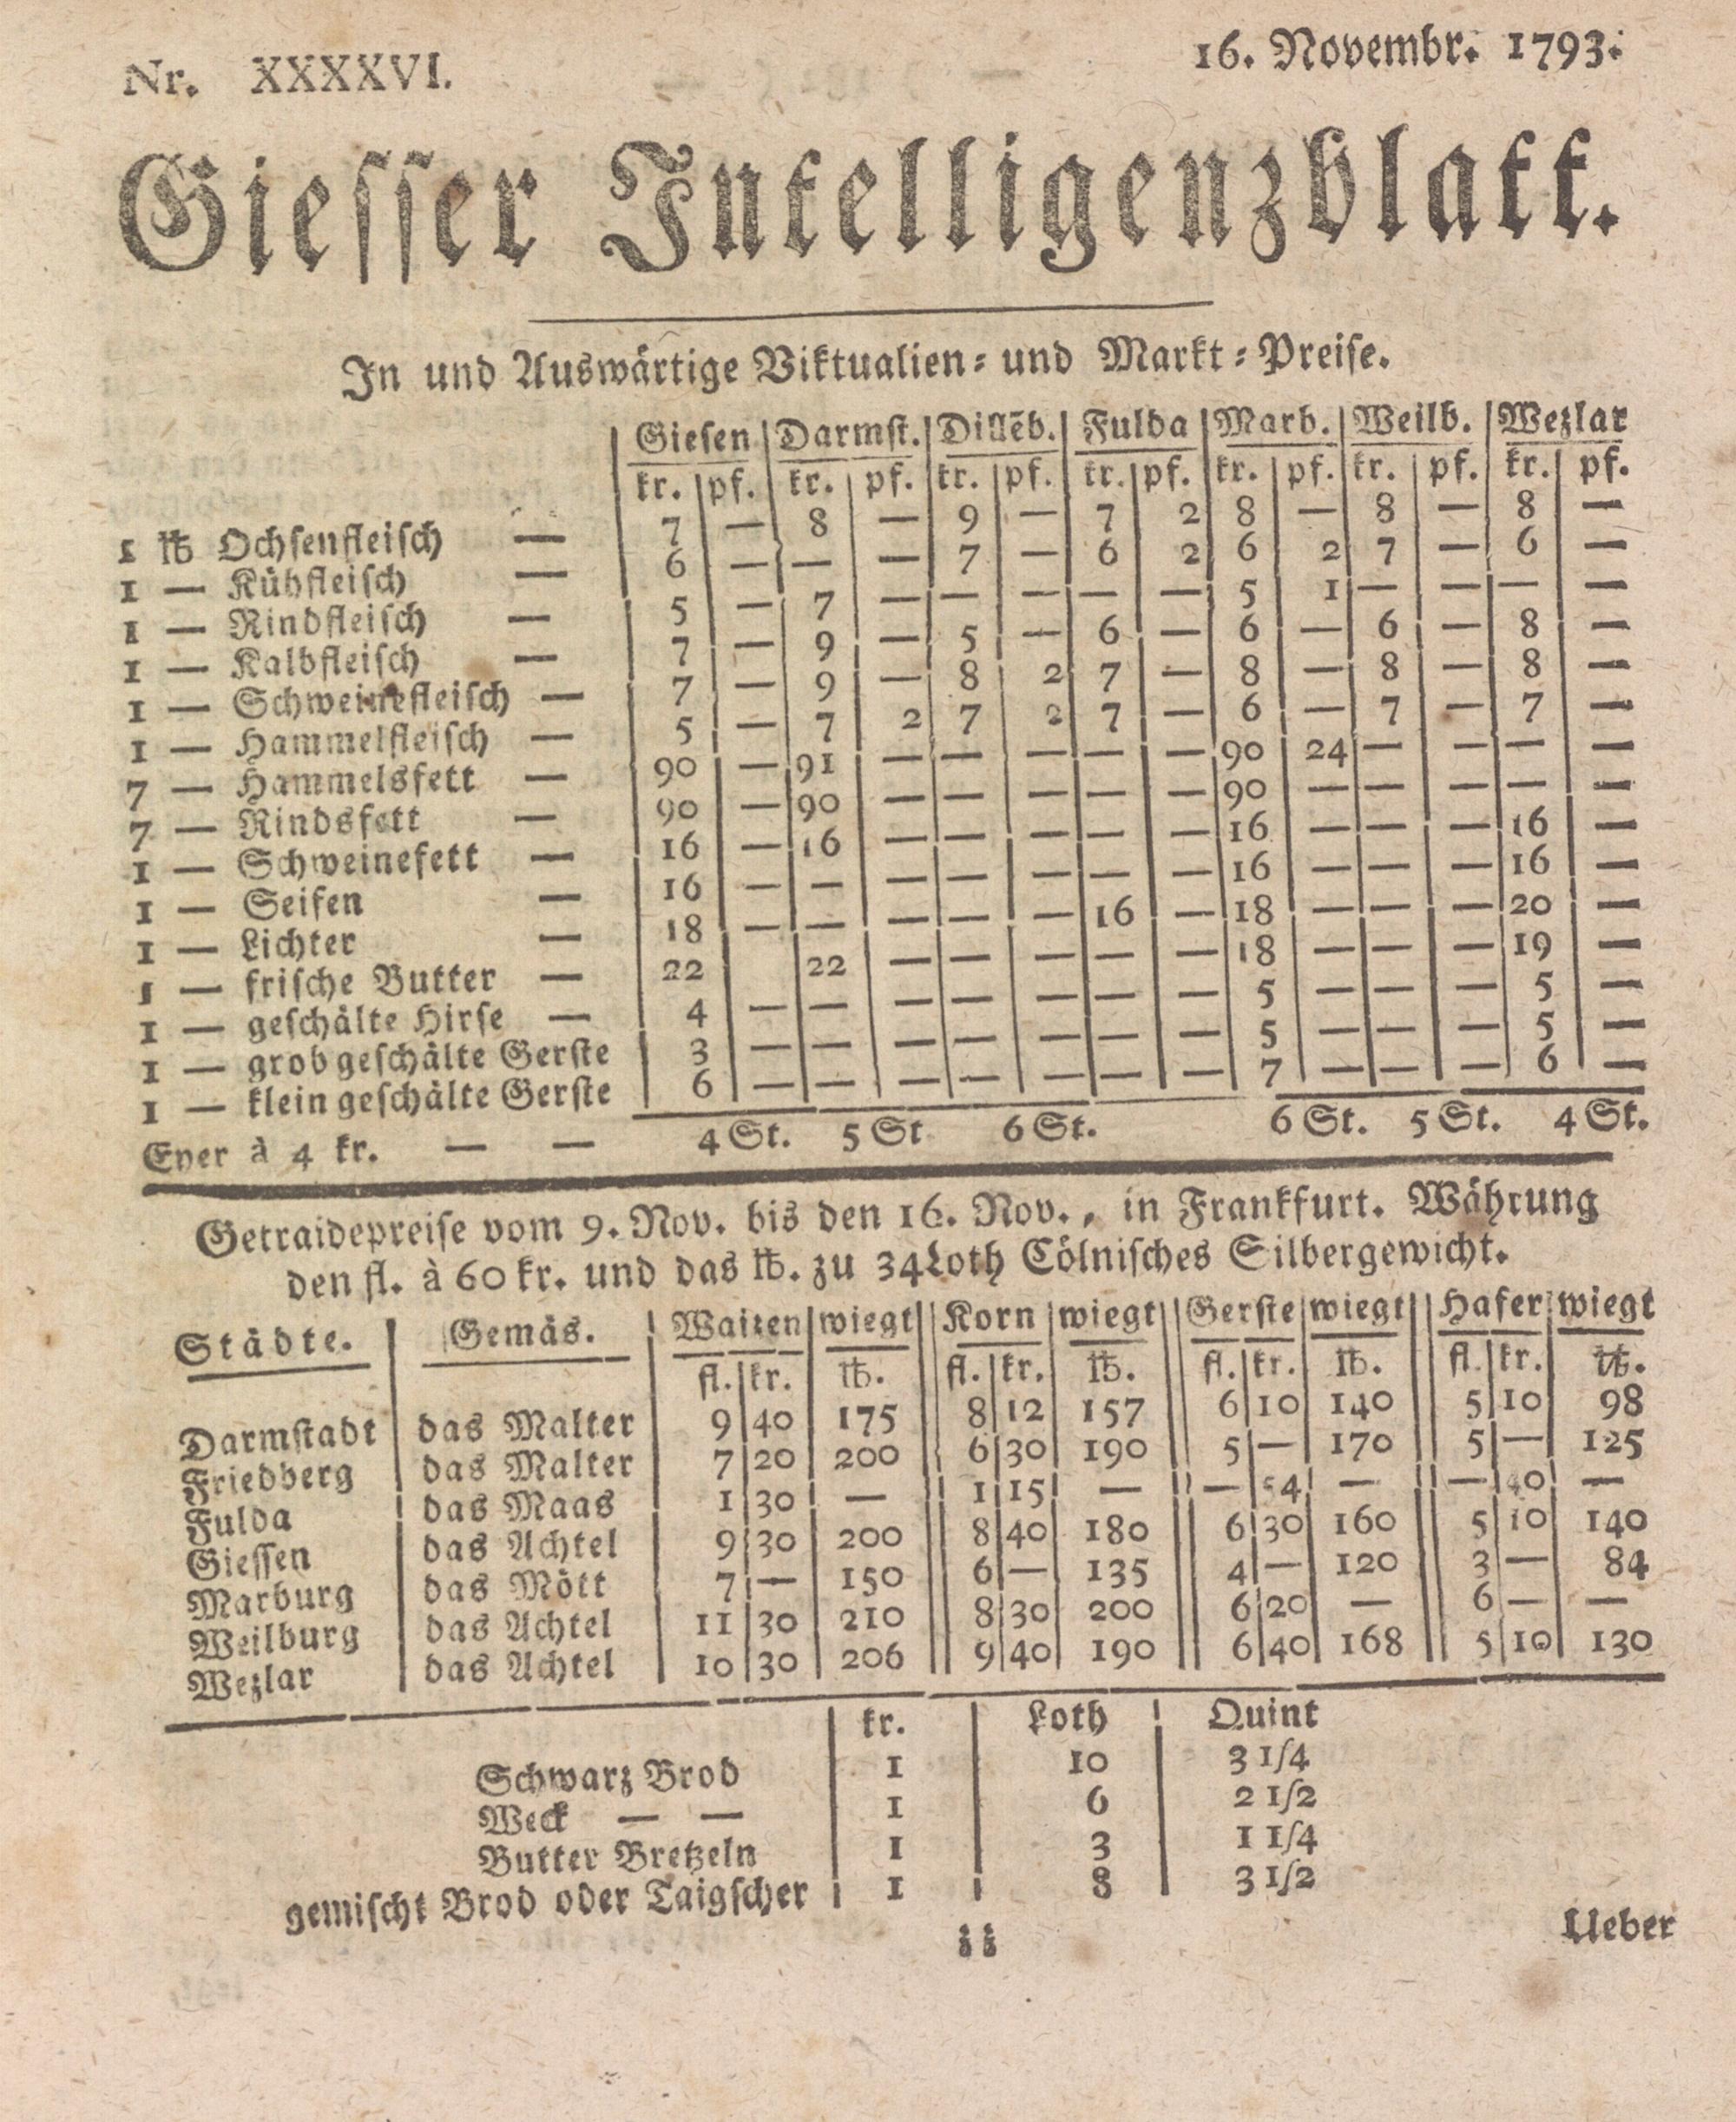 Nr. XXXXVI. 16. Novembr. 1793.
Giesser Intelligenzblatt.
In und Auswärtige Viktualien- und Markt-Preise.
Giesen | Darmst. | Dillēb. | Fulda | Marb. | Weilb. | Wezlar
kr. | pf. | kr. | pf. | kr. | pf. | kr. | pf. | kr. | pf. | kr. | pf. | kr. | pf.
1 ℔ Ochsenfleisch — | 7 | — | 8 | — | 9 | — | 7 | 2 | 8 | — | 8 | — | 8 | —
1 — Kühfleisch — | 6 | — | — | — | 7 | — | 6 | 2 | 6 | 2 | 7 | — | 6 | —
1 — Rindfleisch — | 5 | — | 7 | — | — | — | — | — | 5 | 1 | — | — | — | —
1 — Kalbfleisch — | 7 | — | 9 | — | 5 | — | 6 | — | 6 | — | 6 | — | 8 | —
1 — Schweinefleisch — | 7 | — | 9 | — | 8 | 2 | 7 | — | 8 | — | 8 | — | 8 | —
1 — Hammelfleisch — | 5 | — | 7 | 2 | 7 | 2 | 7 | — | 6 | — | 7 | — | 7 | —
7 — Hammelsfett — | 90 | — | 91 | — | — | — | — | — | 90 | 24 | — | — | — | —
7 — Rindsfett — | 90 | — | 90 | — | — | — | — | — | 90 | — | — | — | — | —
1 — Schweinefett — | 16 | — | 16 | — | — | — | — | — | 16 | — | — | — | 16 | —
1 — Seifen — | 16 | — | — | — | — | — | — | — | 16 | — | — | — | 16 | —
1 — Lichter — | 18 | — | — | — | — | — | 16 | — | 18 | — | — | — | 20 | —
1 — frische Butter — | 22 | | 22 | — | — | — | — | — | 18 | — | — | — | 19 | —
1 — geschälte Hirse — | 4 | — | — | — | — | — | — | — | 5 | — | — | — | 5 | —
1 — grob geschälte Gerste | 3 | — | — | — | — | — | — | — | 5 | — | — | — | 5 | —
1 — klein geschälte Gerste | 6 | — | — | — | — | — | — | — | 7 | — | — | — | 6 | —
Eyer à 4 kr. — — 4 St. 5 St 6 St. 6 St. 5 St. 4 St.
Getraidepreise vom 9. Nov. bis den 16. Nov., in Frankfurt. Währung
den fl. à 60 kr. und das ℔. zu 34 Loth Cölnisches Silbergewicht.
Städte. | Gemäs. | Waizen | wiegt | Korn | wiegt | Gerste | wiegt | Hafer | wiegt
fl. | kr. | ℔. | fl. | kr. | ℔. | fl. | kr. | ℔. | fl. | kr. | ℔.
Darmstadt | das Malter | 9 | 40 | 175 | 8 | 12 | 157 | 6 | 10 | 140 | 5 | 10 | 98
Friedberg | das Malter | 7 | 20 | 200 | 6 | 30 | 190 | 5 | — | 170 | 5 | — | 125
Fulda | das Maas | 1 | 30 | — | 1 | 15 | — | — | 54 | — | — | 40 | —
Giessen | das Achtel | 9 | 30 | 200 | 8 | 40 | 180 | 6 | 30 | 160 | 5 | 10 | 140
Marburg | das Mött | 7 | — | 150 | 6 | — | 135 | 4 | — | 120 | 3 | — | 84
Weilburg | das Achtel | 11 | 30 | 210 | 8 | 30 | 200 | 6 | 20 | — | 6 | — | —
Wezlar | das Achtel | 10 | 30 | 206 | 9 | 40 | 190 | 6 | 40 | 168 | 5 | 10 | 130
kr. | Loth | Quint
Schwarz Brod | 1 | 10 | 3 1/4
Weck — — | 1 | 6 | 2 1/2
Butter Bretzeln | 1 | 3 | 1 1/4
gemischt Brod oder Taigscher | 1 | 8 | 3 1/2
Ueber